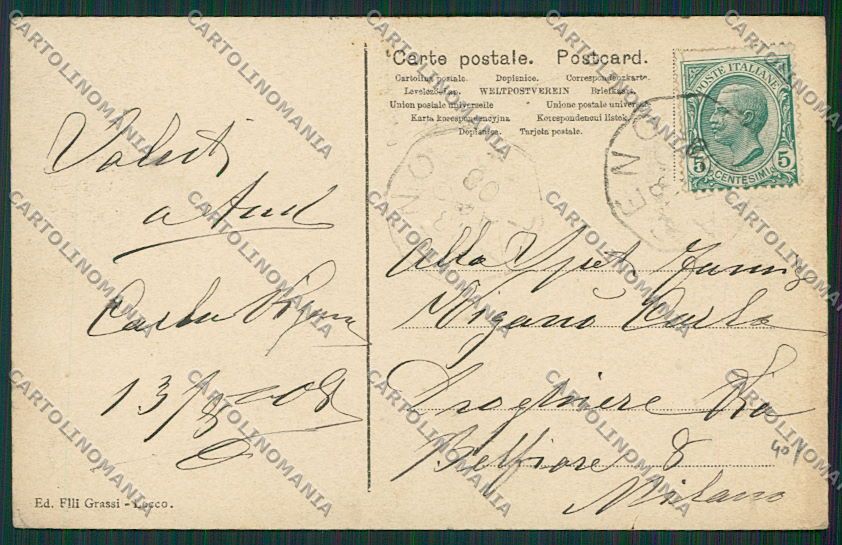 Carte postale. Postcard.
Cartolina postale. Dopisnice. Correspondenzkarte.
Levelező-Lap. WELTPOSTVEREIN Briefkaart.
Union postale universelle Unione postale universale
Karta korespondencyjna Korespondencni listek.
Dopisnica. Tarjeta postale.
POSTE ITALIANE
5 CENTESIMI 5
Saluti
a
Carlo
13/8 908
Alla Spet.
Migano Carlo
Droghiere Via
Belfiore 8
Milano
40
Ed. Flli Grassi - Lecco.
CARTOLINOMANIA